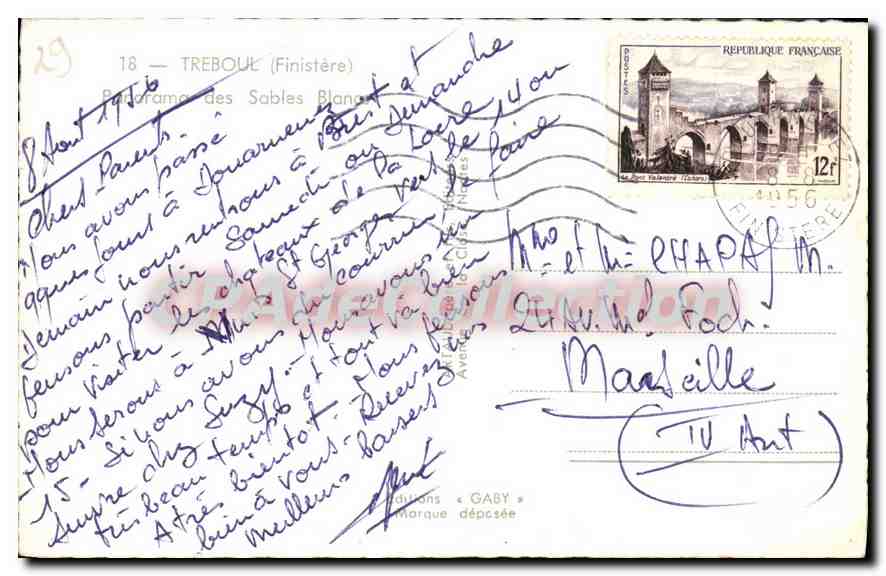 29
18 — TREBOUL (Finistère)
Panorama des Sables Blancs
8 Aout 1956
Chers Parents.
Nous avons passé
qques jours à Douarnenez
Demain nous rentrons à Brest et
pensons partir Samedi ou Dimanche
pour visiter les chateaux de la Loire
Nous serons à St Georges vers le 14 ou
15 - Si vous avons du courrier le faire
suivre chez Suzy. Nous avons un
très beau temps et tout va bien
A très bientôt - Nous pensons
bien à vous - Recevez nos
meilleurs baisers
POSTES
REPUBLIQUE FRANÇAISE
Le Pont Valentré (Cahors)
12f
8-8
1956
FINISTERE
Mme et Mr CHAPAS M.
24 Av. Mal Foch.
Marseille
(IV Arrt)
CPADeCollection
Editions « GABY »
Marque déposée